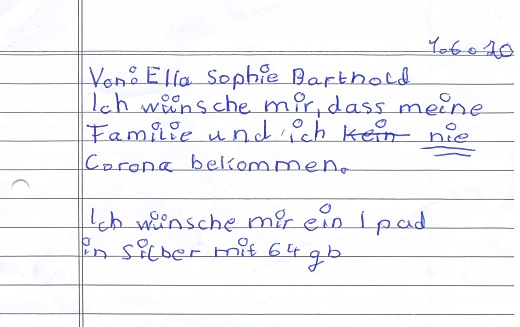 1.6.20
Von: Ella Sophie Barthold
Ich wünsche mir, dass meine
Familie und ich kein nie
Corona bekommen.
Ich wünsche mir ein I pad
in Silber mit 64 gb